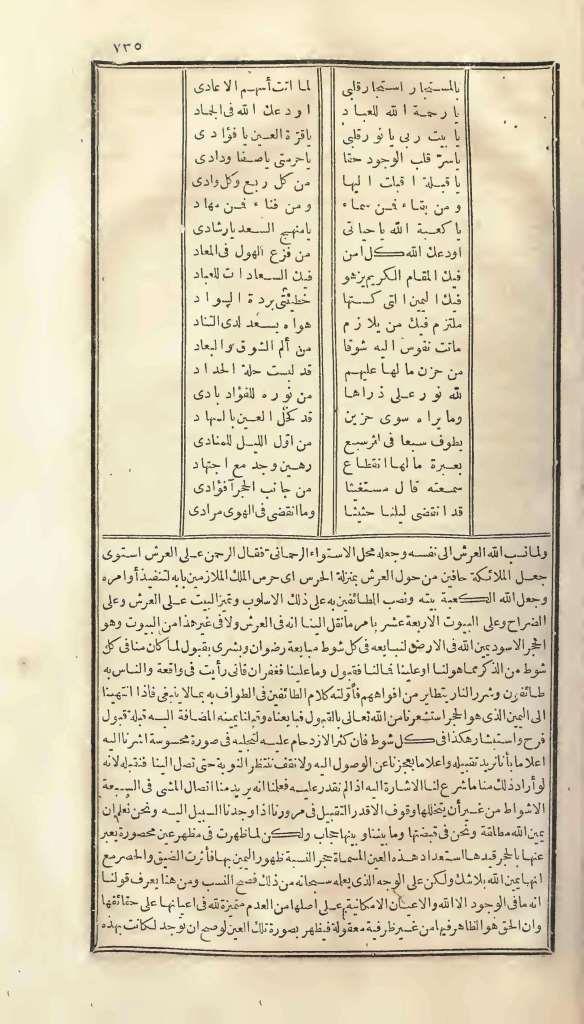 ٧٣٥
بالمستجار استجار قلبى لما اتت أسهم الاعادى
يا رحمة الله للعباد اودعك الله فى الجماد
يا بيت ربى يا نور قلبى ياقرة العين يا فؤادى
ياسر قلب الوجود حقا ياحرمتى ياصفا ودادى
يا قبلة اقبلت اليها من كل ربع وكل وادى
ومن بقاء فمن سماء ومن فناء فمن مهاد
يا كعبة الله يا حياتى يامنهج السعد يا رشادى
اودعك الله كل امن من فزع الهول فى المعاد
فيك المقام الكريم يزهو فيك السعادات للعباد
فيك اليمين التى كستها خطيئتى بردة السواد
ملتزم فيك من يلازم هواه يسعد لدى التناد
ماتت نفوس اليه شوقا من ألم الشوق والبعاد
من حزن مالها عليهم قد لبست حلة الحداد
لله نور على ذراها من نوره للفؤاد بادى
وما يراه سوى حزين قد كحل العين بالسهاد
يطوف سبعا فى اثر سبع من اول الليل للمنادى
بعبرة مالها انقطاع رهين وجد مع اجتهاد
سمعته قال مستغيثا من جانب الحجر آ فؤادى
قد انقضى ليلنا حثيثا وما انقضى فى الهوى مرادى
ولما نسب الله العرش الى نفسه وجعله محل الاستواء الرحمانى فقال الرحمن على العرش استوى
جعل الملائكة حافين من حول العرش بمنزلة الحرس اى حرس الملك الملازمين بابه لتنفيذ أوامره
وجعل الله الكعبة بيته ونصب الطائفين به على ذلك الاسلوب وتميز البيت على العرش وعلى
الضراح وعلى البيوت الاربعة عشر بامر ما نقل الينا انه فى العرش ولا فى غير هذا من البيوت وهو
الحجر الاسود يمين الله فى الارض لنبايعه فى كل شوط مبايعة رضوان وبشرى بقبول لما كان منا فى كل
شوط من الذكر مما هو لنا او علينا فما لنا فقبول وما علينا فغفران فانى رأيت فى واقعة والناس به
طائفون وشرر النار يتطاير من افواههم فأولته كلام الطائفين فى الطواف به بما لا ينبغى فاذا انتهينا
الى اليمين الذى هو الحجر استشعرنا من الله تعالى بالقبول فبايعناه وقبلنا يمينه المضافة اليه قبلة قبول
فرح واستبشار هكذا فى كل شوط فان كثر الازدحام عليه لتجليه فى صورة محسوسة اشرنا اليه
اعلاما بأنا نريد تقبيله واعلاما بعجزنا عن الوصول اليه ولا نقف ننتظر النوبة حتى تصل الينا فنقبله لانه
لو أراد ذلك منا ما شرع لنا الاشارة اليه اذا لم نقدر عليه فعلنا انه يريد منا اتصال المشى فى السبعة
الاشواط من غير أن يتخللها وقوف الا قدر التقبيل فى مرورنا اذا وجدنا السبيل اليه ونحن نعلم ان
يمين الله مطلقة ونحن فى قبضتها وما بيننا وبينها حجاب ولكن لما ظهرت فى مظهر عين محصورة يعبر
عنها بالحجر قيدها استعداد هذه العين المسماة حجر النسبة ظهور اليمين بها فأثرت الضيق والحصر مع
انها يمين الله بلا شك ولكن على الوجه الذى يعلمه سبحانه من ذلك فصح النسب ومن هنا يعرف قولنا
انه ما فى الوجود الا الله والاعيان الامكانية على اصلها من العدم متميزة لله فى اعيانها على حقائقها
وان الحق هو الظاهر فيها من غير ظرفية معقولة فيظهر بصورة تلك العين لو صح ان توجد لكانت بهذه